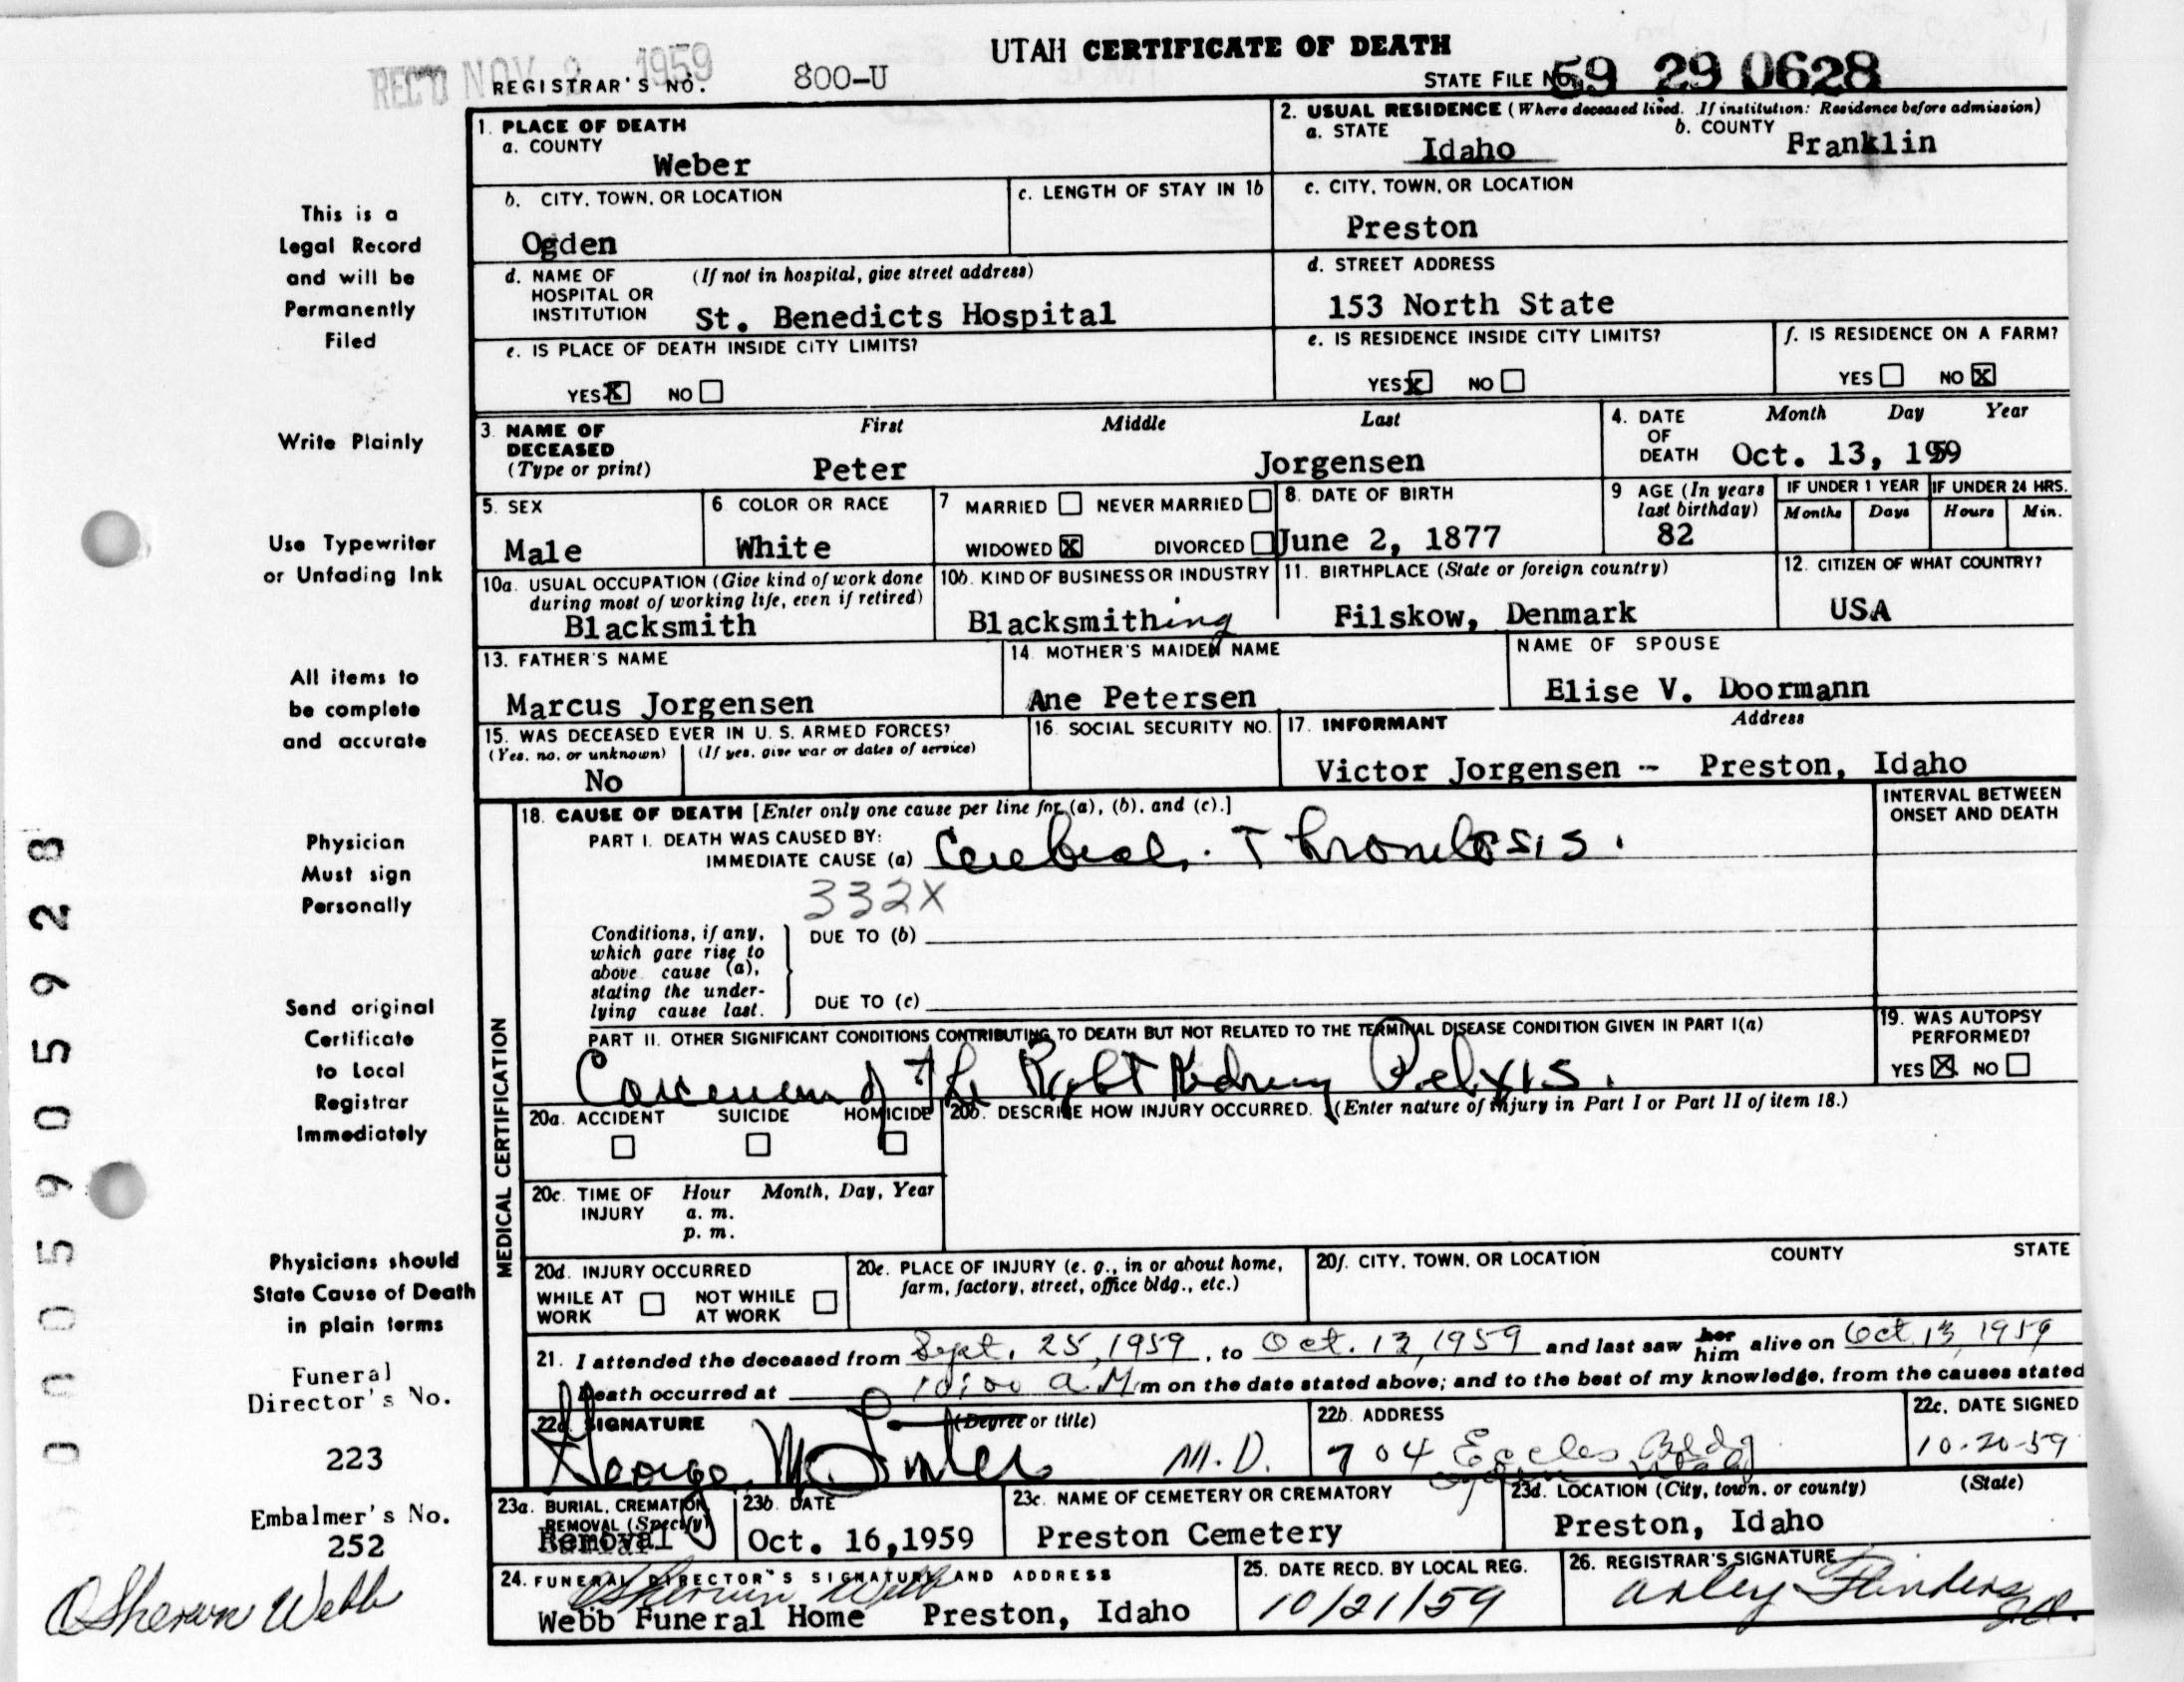 UTAH CERTIFICATE OF DEATH
REC'D NOV 2 1959
REGISTRAR'S NO. 800-U
STATE FILE NO. 59 29 0628
1. PLACE OF DEATH
a. COUNTY
Weber
2. USUAL RESIDENCE (Where deceased lived. If institution: Residence before admission)
a. STATE
Idaho
b. COUNTY
Franklin
b. CITY, TOWN, OR LOCATION
Ogden
c. LENGTH OF STAY IN 1b
c. CITY, TOWN, OR LOCATION
Preston
d. NAME OF HOSPITAL OR INSTITUTION
(If not in hospital, give street address)
St. Benedicts Hospital
d. STREET ADDRESS
153 North State
e. IS PLACE OF DEATH INSIDE CITY LIMITS?
YES X NO
e. IS RESIDENCE INSIDE CITY LIMITS?
YES X NO
f. IS RESIDENCE ON A FARM?
YES NO X
3. NAME OF DECEASED
(Type or print)
First Middle Last
Peter Jorgensen
4. DATE OF DEATH
Month Day Year
Oct. 13, 1959
5. SEX
Male
6. COLOR OR RACE
White
7 MARRIED NEVER MARRIED
WIDOWED X DIVORCED
8. DATE OF BIRTH
June 2, 1877
9 AGE (In years last birthday)
82
IF UNDER 1 YEAR
Months Days
IF UNDER 24 HRS.
Hours Min.
10a. USUAL OCCUPATION (Give kind of work done
during most of working life, even if retired)
Blacksmith
10b. KIND OF BUSINESS OR INDUSTRY
Blacksmithing
11. BIRTHPLACE (State or foreign country)
Filskow, Denmark
12. CITIZEN OF WHAT COUNTRY?
USA
13. FATHER'S NAME
Marcus Jorgensen
14. MOTHER'S MAIDEN NAME
Ane Petersen
NAME OF SPOUSE
Elise V. Doormann
15. WAS DECEASED EVER IN U. S. ARMED FORCES?
(Yes, no, or unknown) (If yes, give war or dates of service)
No
16. SOCIAL SECURITY NO.
17. INFORMANT Address
Victor Jorgensen -- Preston, Idaho
MEDICAL CERTIFICATION
18. CAUSE OF DEATH [Enter only one cause per line for (a), (b), and (c).]
INTERVAL BETWEEN
ONSET AND DEATH
PART I. DEATH WAS CAUSED BY:
IMMEDIATE CAUSE (a) Cerebral Thrombosis.
332X
Conditions, if any,
which gave rise to
above cause (a),
stating the under-
lying cause last.
DUE TO (b)
DUE TO (c)
PART II. OTHER SIGNIFICANT CONDITIONS CONTRIBUTING TO DEATH BUT NOT RELATED TO THE TERMINAL DISEASE CONDITION GIVEN IN PART I(a)
Carcinoma of the Right Kidney Pelvis.
19. WAS AUTOPSY
PERFORMED?
YES X NO
20a. ACCIDENT SUICIDE HOMICIDE
20b. DESCRIBE HOW INJURY OCCURRED. (Enter nature of injury in Part I or Part II of item 18.)
20c. TIME OF INJURY
Hour Month, Day, Year
a. m.
p. m.
20d. INJURY OCCURRED
WHILE AT WORK
NOT WHILE AT WORK
20e. PLACE OF INJURY (e. g., in or about home,
farm, factory, street, office bldg., etc.)
20f. CITY, TOWN, OR LOCATION COUNTY STATE
21. I attended the deceased from Sept. 25, 1959, to Oct. 13, 1959 and last saw her him alive on Oct 13, 1959
Death occurred at 10:00 A.M m on the date stated above; and to the best of my knowledge, from the causes stated
22a. SIGNATURE (Degree or title)
George M. M.D.
22b. ADDRESS
704 Eccles Bldg
Ogden Utah
22c. DATE SIGNED
10-20-59
23a. BURIAL, CREMATION,
REMOVAL (Specify)
Removal
23b. DATE
Oct. 16,1959
23c. NAME OF CEMETERY OR CREMATORY
Preston Cemetery
23d. LOCATION (City, town, or county) (State)
Preston, Idaho
24. FUNERAL DIRECTOR'S SIGNATURE AND ADDRESS
O Sherwin Webb
Webb Funeral Home Preston, Idaho
25. DATE RECD. BY LOCAL REG.
10/21/59
26. REGISTRAR'S SIGNATURE
Arley Flinders
This is a
Legal Record
and will be
Permanently
Filed
Write Plainly
Use Typewriter
or Unfading Ink
All items to
be complete
and accurate
Physician
Must sign
Personally
Send original
Certificate
to Local
Registrar
Immediately
Physicians should
State Cause of Death
in plain terms
Funeral
Director's No.
223
Embalmer's No.
252
O Sherwin Webb
0005905928